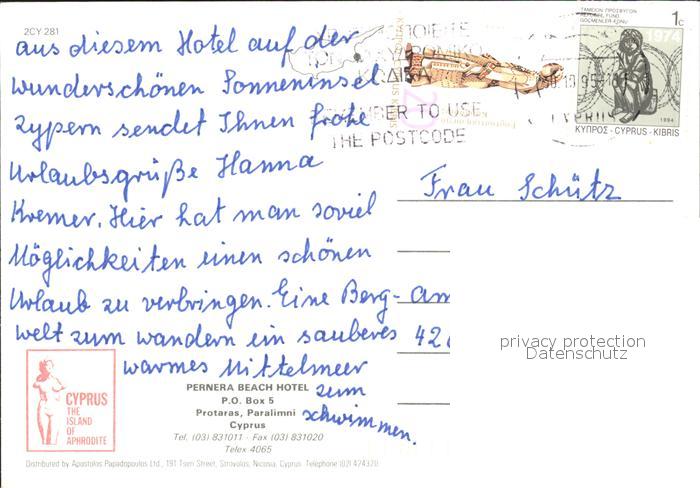 2CY 281
aus diesem Hotel auf der
wunderschönen Sonneninsel
Zypern sendet Ihnen frohe
Urlaubsgrüße Hanna
Kremer. Hier hat man soviel
Möglichkeiten einen schönen
Urlaub zu verbringen. Eine Berg-
welt zum wandern ein sauberes
warmes Mittelmeer
zum
schwimmen.
CYPRUS
THE
ISLAND
OF
APHRODITE
PERNERA BEACH HOTEL
P.O. Box 5
Protaras, Paralimni
Cyprus
Tel. (03) 831011 - Fax (03) 831020
Telex 4065
Distributed by Apostolos Papadopoulos Ltd., 191 Tseri Street, Strovolos, Nicosia, Cyprus. Telephone (02) 424370
TO USE
THE POSTCODE
1c
1974
1994
ΚΥΠΡΟΣ - CYPRUS - KIBRIS
Frau Schütz
Am
42
privacy protection
Datenschutz